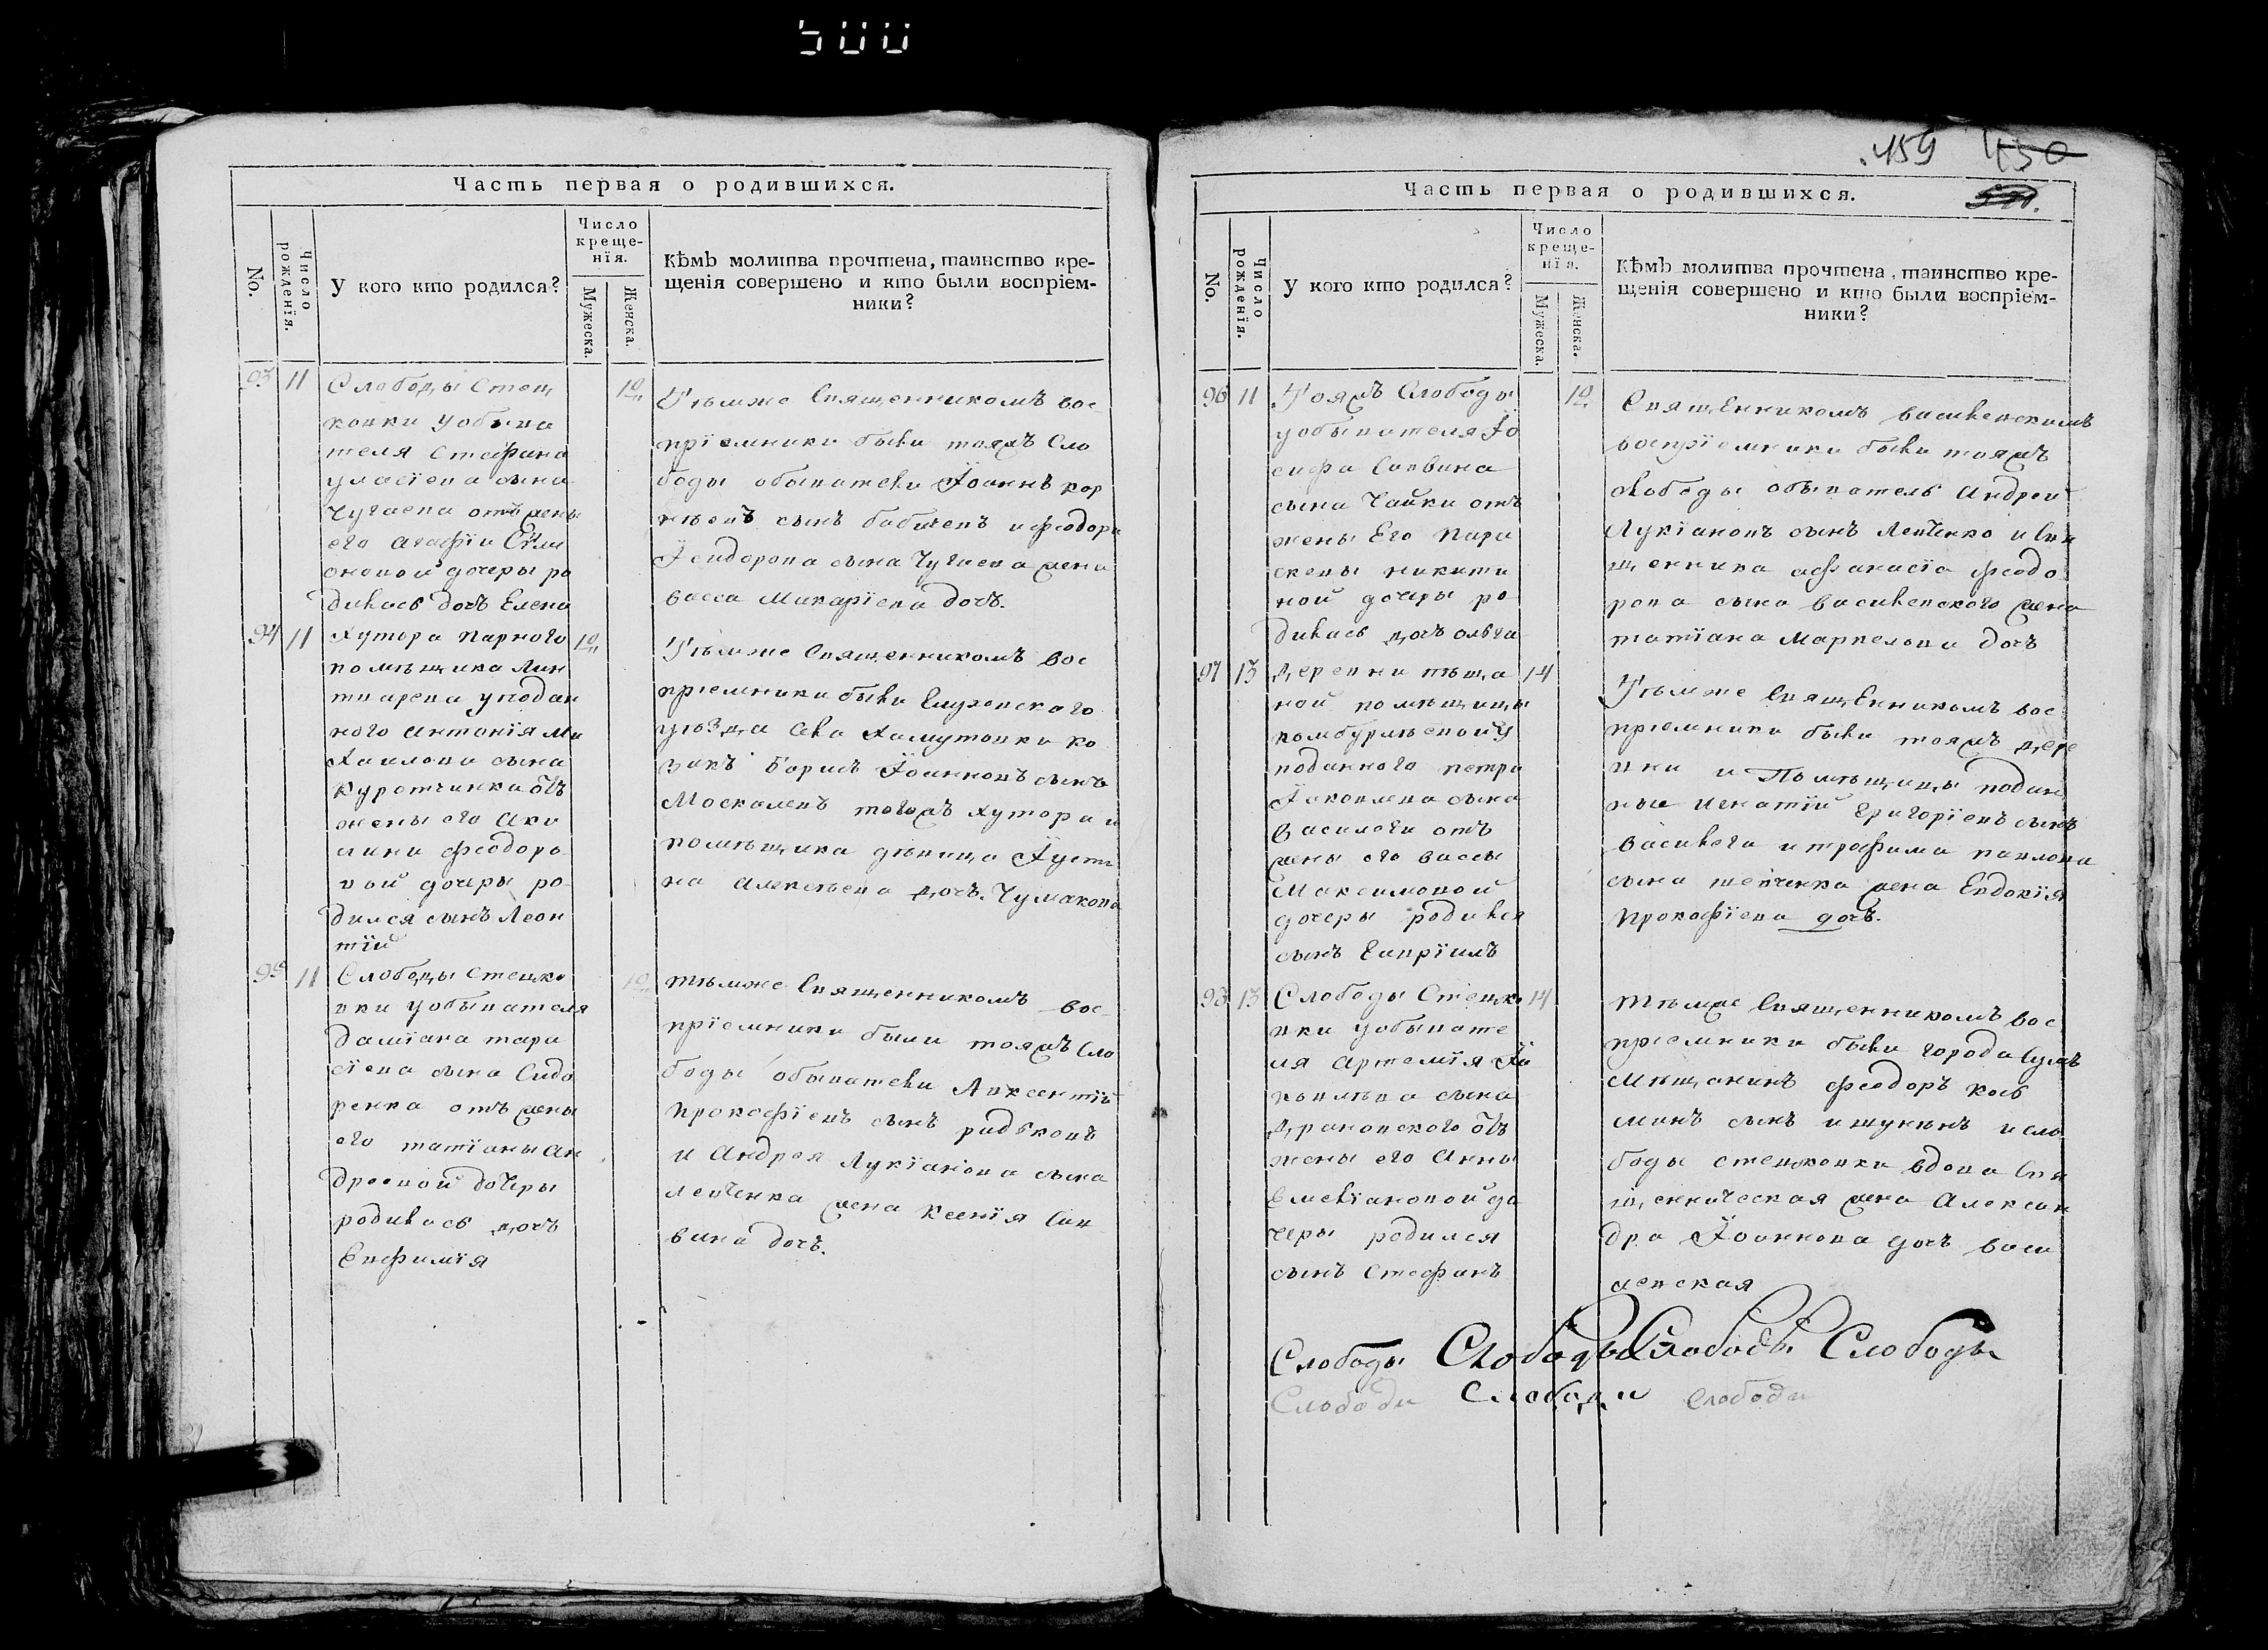 500
Часть первая о родившихся.
No.
Число рожденїя.
У кого кто родился?
Число
креще-
нїя.
Мужеска.
Женска.
Кѣмъ молитва прочтена, таинство кре-
щенія совершено и кто были воспріем-
ники?
93 11
Слободы Стец
ковки уобыва
теля Стефана
Власїева сына
Чугаева отъ жены
его Агафїи Сѵм
оновой дочеры ро
дилась дочь Елена
10
Тѣмже Священникомъ вос
прїемники были тояжъ Сло
боды обыватели Їоаннъ кор
нѣевъ сынъ бабичевъ и феодора
Їсидорова сына Чугаева жена
васса Макарїева дочь.
94 11
Хутора Парного
помѣщика Лин
тварева уподан
ного Антонїя Ми
Хаилова сына
Куротчинка отъ
жены его Аку
лини феодоро
вой дочеры ро
дился сынъ Леон
тїй
10
Тѣмже Священникомъ вос
прїемники были
уѣзда села Хамутовки ко
закъ Борисъ Їоанновъ сынъ
Москалевъ тогожъ хутора и
помѣщика дѣвица Їусти
на Алексѣева дочь Чумакова
95 11
Слободы Стецко
вки уобывателя
Дамїана тара
сїева сына Сидо
ренка отъ жены
его татїаны Ан
дреевой дочеры
родилась дочь
Евфимїя
10
тѣмже Священникомъ вос
прїемники были тояжъ Сло
боды обыватели Авксентїй
Прокофїевъ сынъ радковъ
и Андрея Лукїанова сына
левченка жена Ксенїя Сав
вина дочь.
.459 450
Часть первая о родившихся.
No.
Число рожденїя.
У кого кто родился?
Число
креще-
нїя.
Мужеска.
Женска.
Кѣмъ молитва прочтена, таинство кре-
щенія совершено и кто были воспріем-
ники?
96 11
Тояжъ Слободы
уобывателя Їо
сифа Саввина
сына Чайки отъ
жены Его Пара
скевы никити
ной дочеры ро
дилась дочь ольга
10
СвящЕнникомъ василевскимъ
воспрїемники были тояжъ
слободы обыватель Андрей
Лукїановъ сынъ Левченко и Свя
щенника афанасїа феодо
рова сына василевского жена
татїана Маркелова дочь
97 13
Деревни пѣща
ной помѣщицы
комбурлѣевой у
поданного петра
Їаковлева сына
Василоги отъ
жены его вассы
Максимовой
дочеры родился
сынъ Гаврїилъ
14
Тѣмже СвящЕнникомъ вос
прїемники были тояжъ дере
вни и Помѣщицы подан
ные Игнатїй Григорїевъ сынъ
Василога и трофима павлова
сына шевченка жена Евдокїя
Прокофїева дочь.
98 13
Слободы Стецко
вки уобывате
ля Артемїя Їа
ковлева сына
Драновского отъ
жены его Анны
Емелїановой до
черы родился
сынъ Стефанъ
14
Тѣмже Священникомъ вос
прїемники были города Сумъ
мѣщанинъ феодоръ коз
минъ сынъ ишунинъ и сло
боды стецковки вдова Свя
щенническая жена Алексан
дра Їоаннова дочь васи
левская
Слободы Слободы Слободы Слободы
Слободи Слободи Слободи